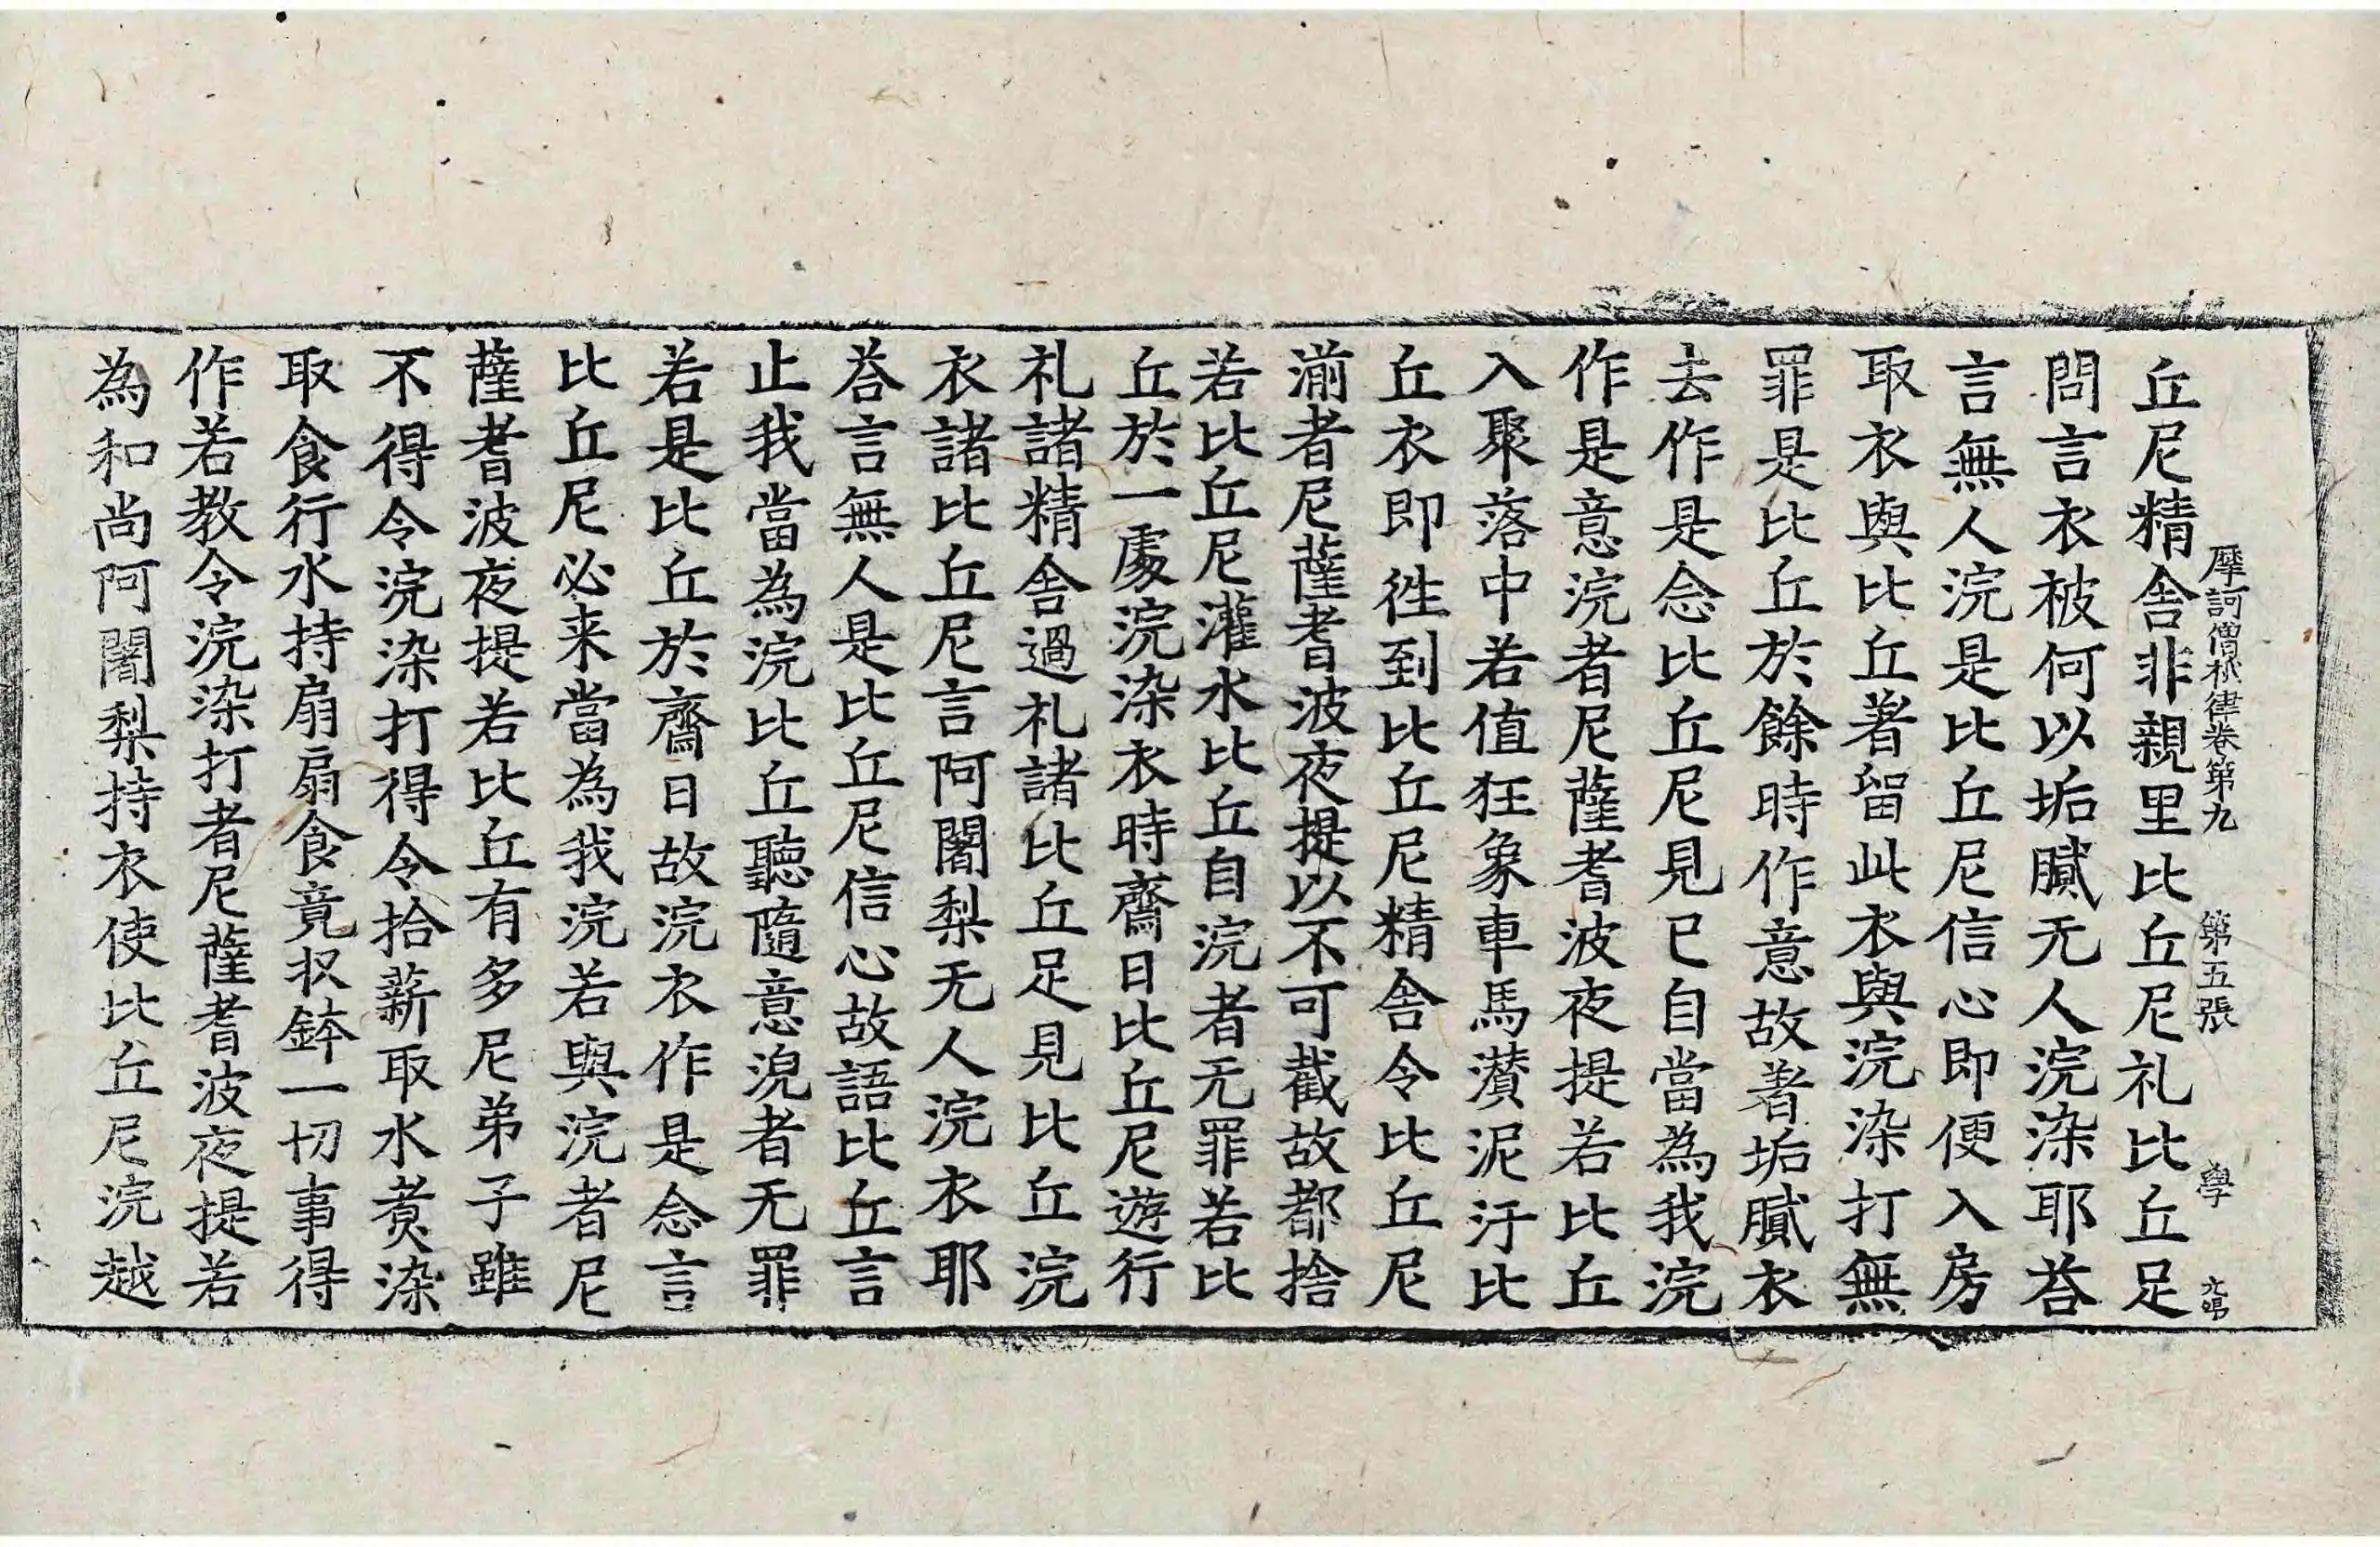 摩訶僧祇律卷第九　第五張　學
丘尼精舍非親里比丘尼礼比丘足
問言衣被何以垢膩无人浣染耶荅
言無人浣是比丘尼信心即便入房
取衣與比丘著留此衣與浣染打無
罪是比丘於餘時作意故著垢膩衣
去作是念比丘尼見已自當為我浣
作是意浣者尼薩耆波夜提若比丘
入聚落中若值狂象車馬濽泥汙比
丘衣即徃到比丘尼精舍令比丘尼
湔者尼薩耆波夜提以不可截故都捨
若比丘尼灌水比丘自浣者无罪若比
丘於一處浣染衣時齋日比丘尼遊行
礼諸精舍過礼諸比丘足見比丘浣
衣諸比丘尼言阿闍梨无人浣衣耶
荅言無人是比丘尼信心故語比丘言
止我當為浣比丘聽隨意浣者无罪
若是比丘於齋日故浣衣作是念言
比丘尼必来當為我浣若與浣者尼
薩耆波夜提若比丘有多尼弟子雖
不得令浣染打得令拾薪取水煑染
取食行水持扇扇食竟収鉢一切事得
作若教令浣染打者尼薩耆波夜提若
為和尚阿闍梨持衣使比丘尼浣越